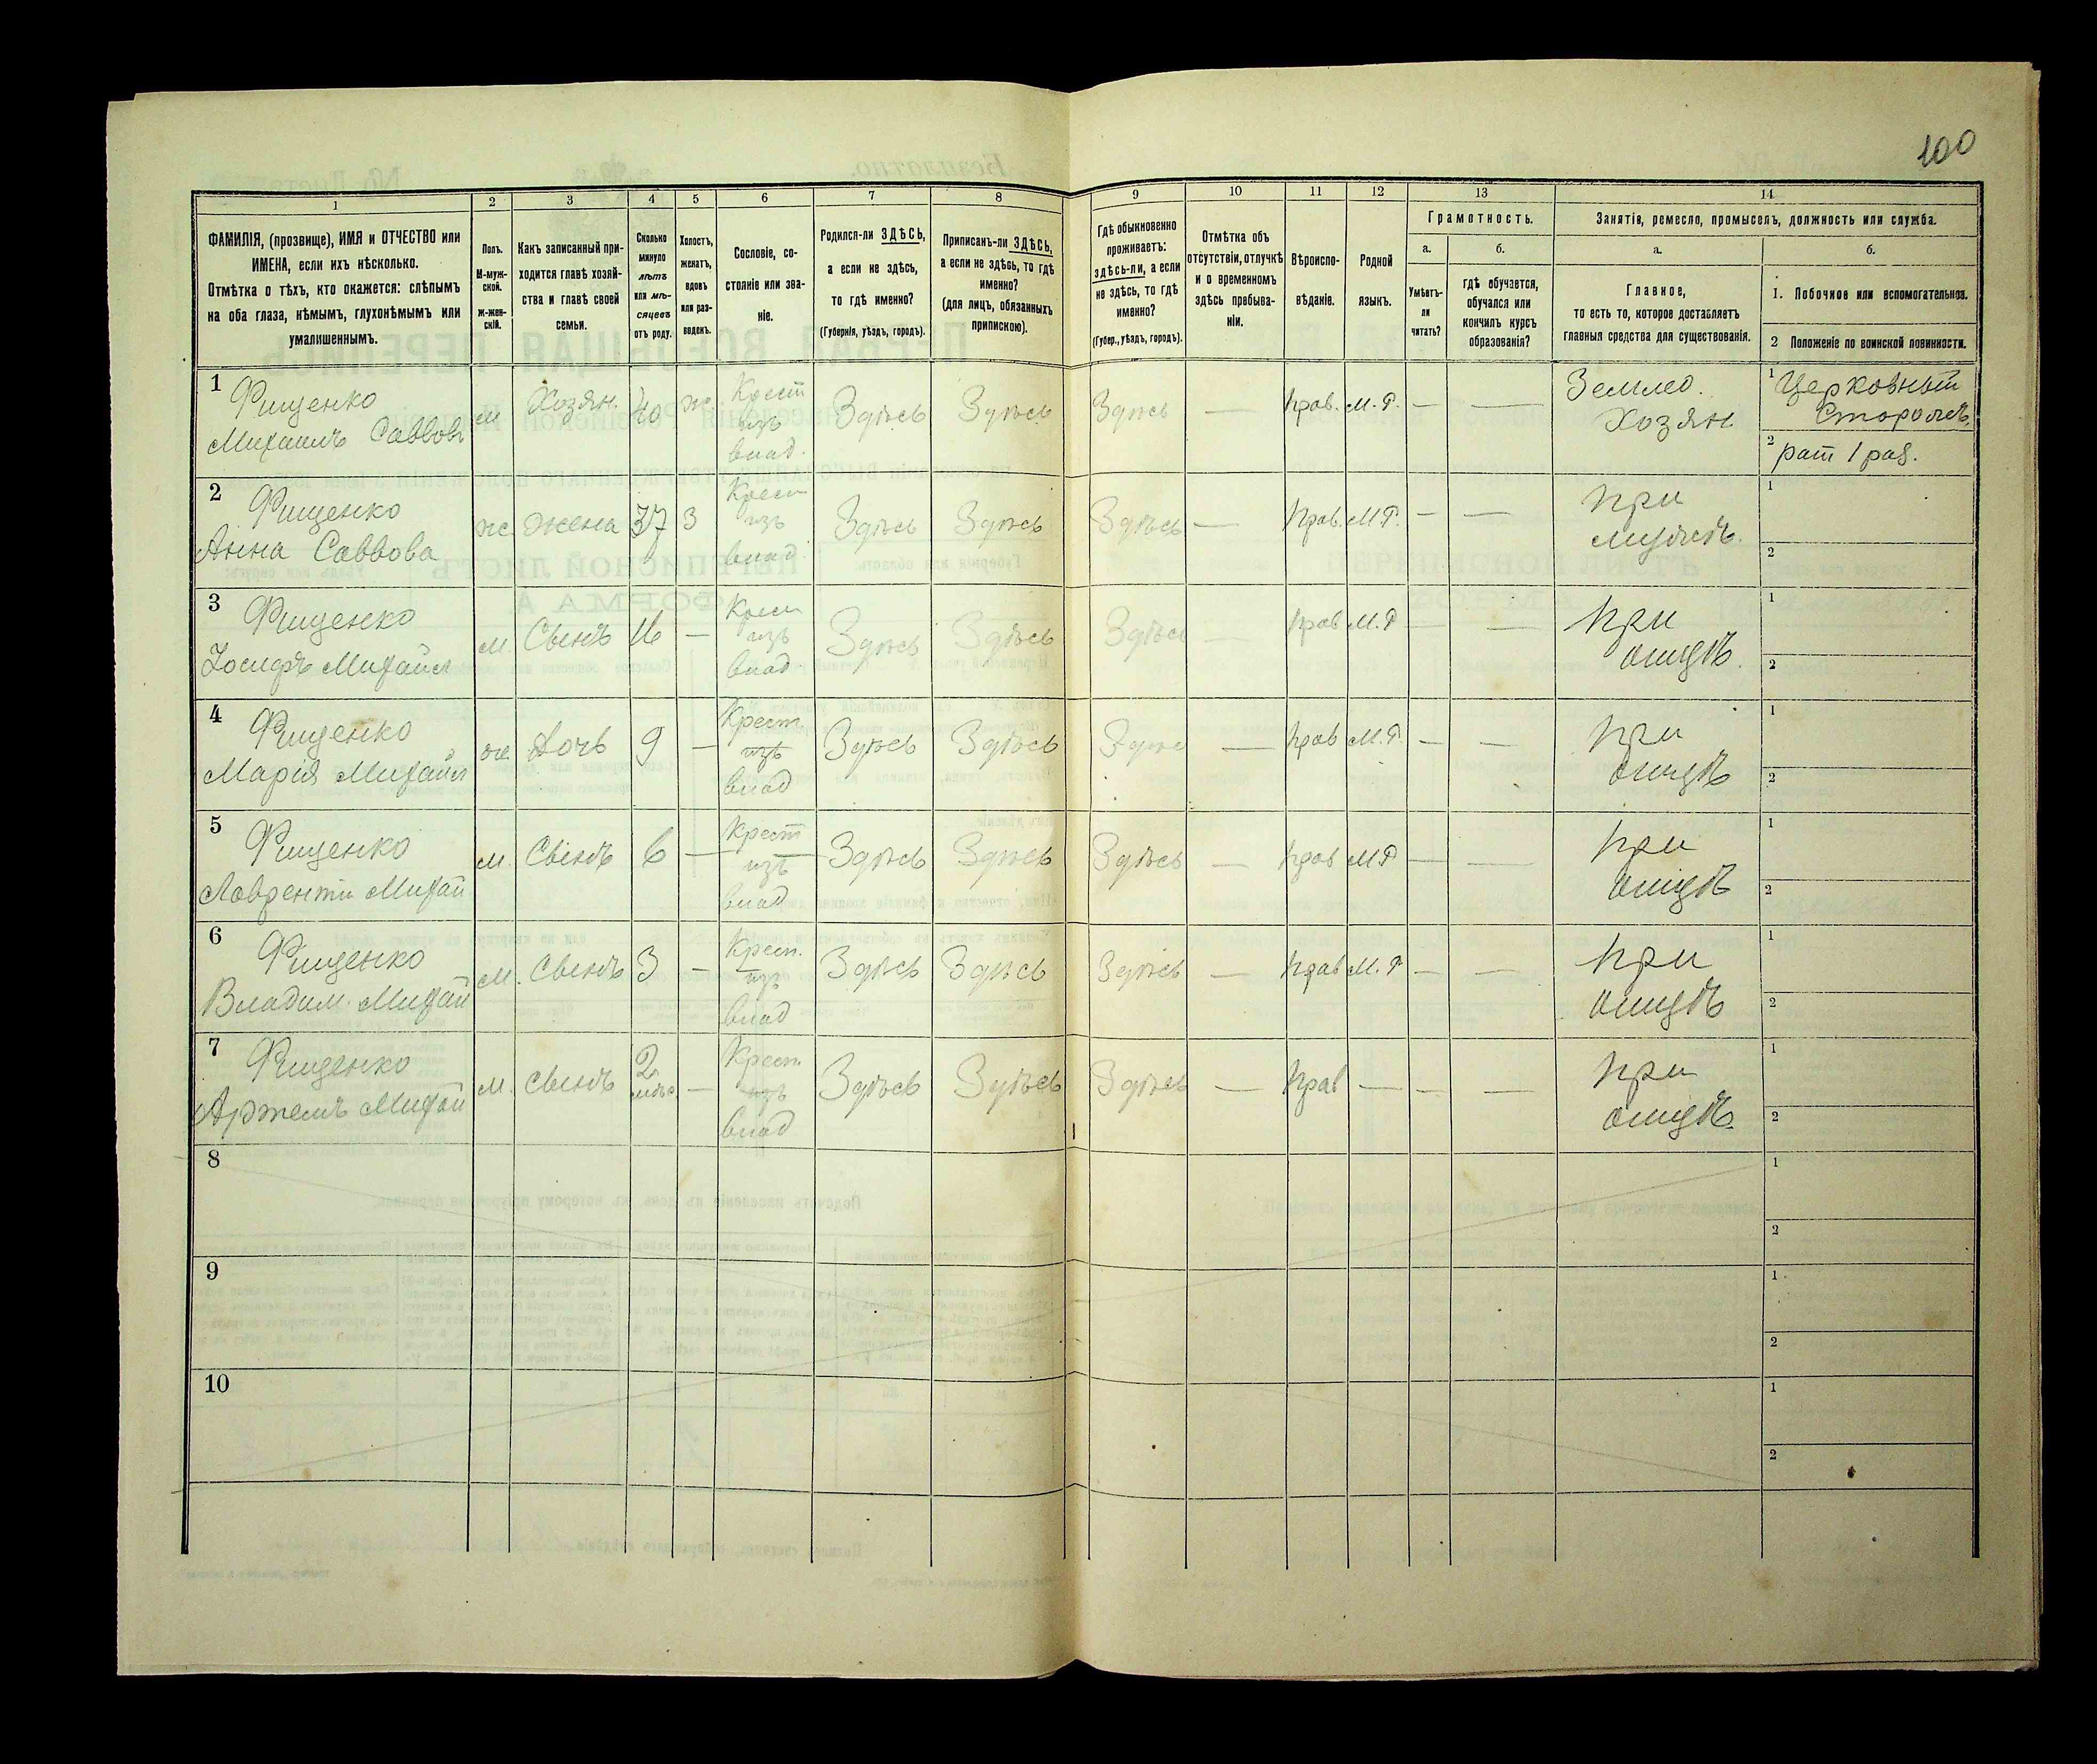 100
1 2 3 4 5 6 7 8 9 10 11 12 13 14
ФАМИЛІЯ, (прозвище), ИМЯ и ОТЧЕСТВО или
ИМЕНА, если ихъ нѣсколько.
Отмѣтка о тѣхъ, кто окажется: слѣпымъ
на оба глаза, нѣмымъ, глухонѣмымъ или
умалишеннымъ.
Полъ.
М-муж-
ской.
ж-жен-
скій.
Какъ записанный при-
ходится главѣ хозяй-
ства и главѣ своей
семьи.
Сколько
минуло
лѣтъ
или мѣ-
сяцевъ
отъ роду.
Холостъ,
женатъ,
вдовъ
или раз-
веденъ.
Сословіе, со-
стояніе или зва-
ніе.
Родился-ли ЗДѢСЬ,
а если не здѣсь,
то гдѣ именно?
(Губернія, уѣздъ, городъ).
Приписанъ-ли ЗДѢСЬ,
а если не здѣсь, то гдѣ
именно?
(для лицъ, обязанныхъ
припискою).
Гдѣ обыкновенно
проживаетъ:
здѣсь-ли, а если
не здѣсь, то гдѣ
именно?
(Губер., уѣздъ, городъ).
Отмѣтка объ
отсутствіи, отлучкѣ
и о временномъ
здѣсь пребыва-
ніи.
Вѣроиспо-
вѣданіе.
Родной
языкъ.
Грамотность.
а.
Умѣетъ-
ли
читать?
б.
гдѣ обучается,
обучался или
кончилъ курсъ
образованія?
Занятія, ремесло, промыселъ, должность или служба.
а.
Главное,
то есть то, которое доставляетъ
главныя средства для существованія.
б.
1. Побочное или вспомогательное.
2 Положеніе по воинской повинности.
1
Фищенко
Михаилъ Саввовъ
м
Хозян.
40
ж.
Крест
изъ
влад.
Здѣсь
Здѣсь
Здѣсь
—
Прав.
М.Р.
—
—
Землед.
Хозян
1 Церковный
Сторожъ.
2 рат 1 раз.
2
Фищенко
Анна Саввова
ж
жена
37
З
Крест
изъ
влад
Здѣсь
Здѣсь
Здѣсь
—
Прав.
М.Р.
—
—
при
мужѣ.
1
2
3
Фищенко
Іосифъ Михайл
м.
Сынъ
16
—
Крест
изъ
влад
Здѣсь
Здѣсь
Здѣсь
—
Прав
М.Р
—
—
при
отцѣ.
1
2
4
Фищенко
Марія Михайл
ж
Дочь
9
—
Крест.
изъ
влад
Здѣсь
Здѣсь
Здѣсь
—
Прав
М.Р.
—
—
при
отцѣ
1
2
5
Фищенко
Лаврентій Михай
м.
Сынъ
6
—
Крест
изъ
влад
Здѣсь
Здѣсь
Здѣсь
—
Прав
М.Р
—
—
при
отцѣ
1
2
6
Фищенко
Владим. Михай
м.
Сынъ
3
—
Крест.
изъ
влад
Здѣсь
Здѣсь
Здѣсь
—
Прав
М.Р
—
—
при
отцѣ
1
2
7
Фищенко
Артемъ Михай
м.
сынъ
2
мѣс
—
Крест.
изъ
влад
Здѣсь
Здѣсь
Здѣсь
—
Прав
—
—
—
при
отцѣ.
1
2
8
1
2
9
1
2
10
1
2